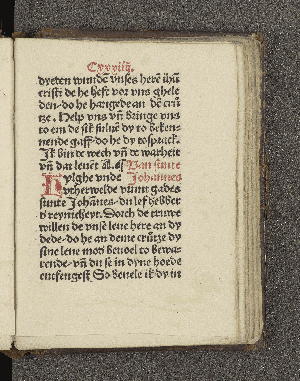 Cxxviij.
dyeten wunden vnses herē ihū
cristi de he heft vor vns ghele
den· do he hangede an dē crü
tze. Help vns vn̄ bringe vns
to em de sik sulven dy to beken-
nende gaff· do he dy tosprack.
Ik bin de wech vn̄ de warheit
vn̄ dat levent Van sunte
Hylghe vnde Johannes
vtherwelde vrunt gades
sunte Johānes· du lef hebber
vn̄ reynicheyt. Dorch de truwe
willen de vnse leue here an dy
dede· do he an deme crütze dy
sine leue moder beuol to bewa-
rende· vn̄ du se in dyne hoede
entfengest So beuele ik dy in